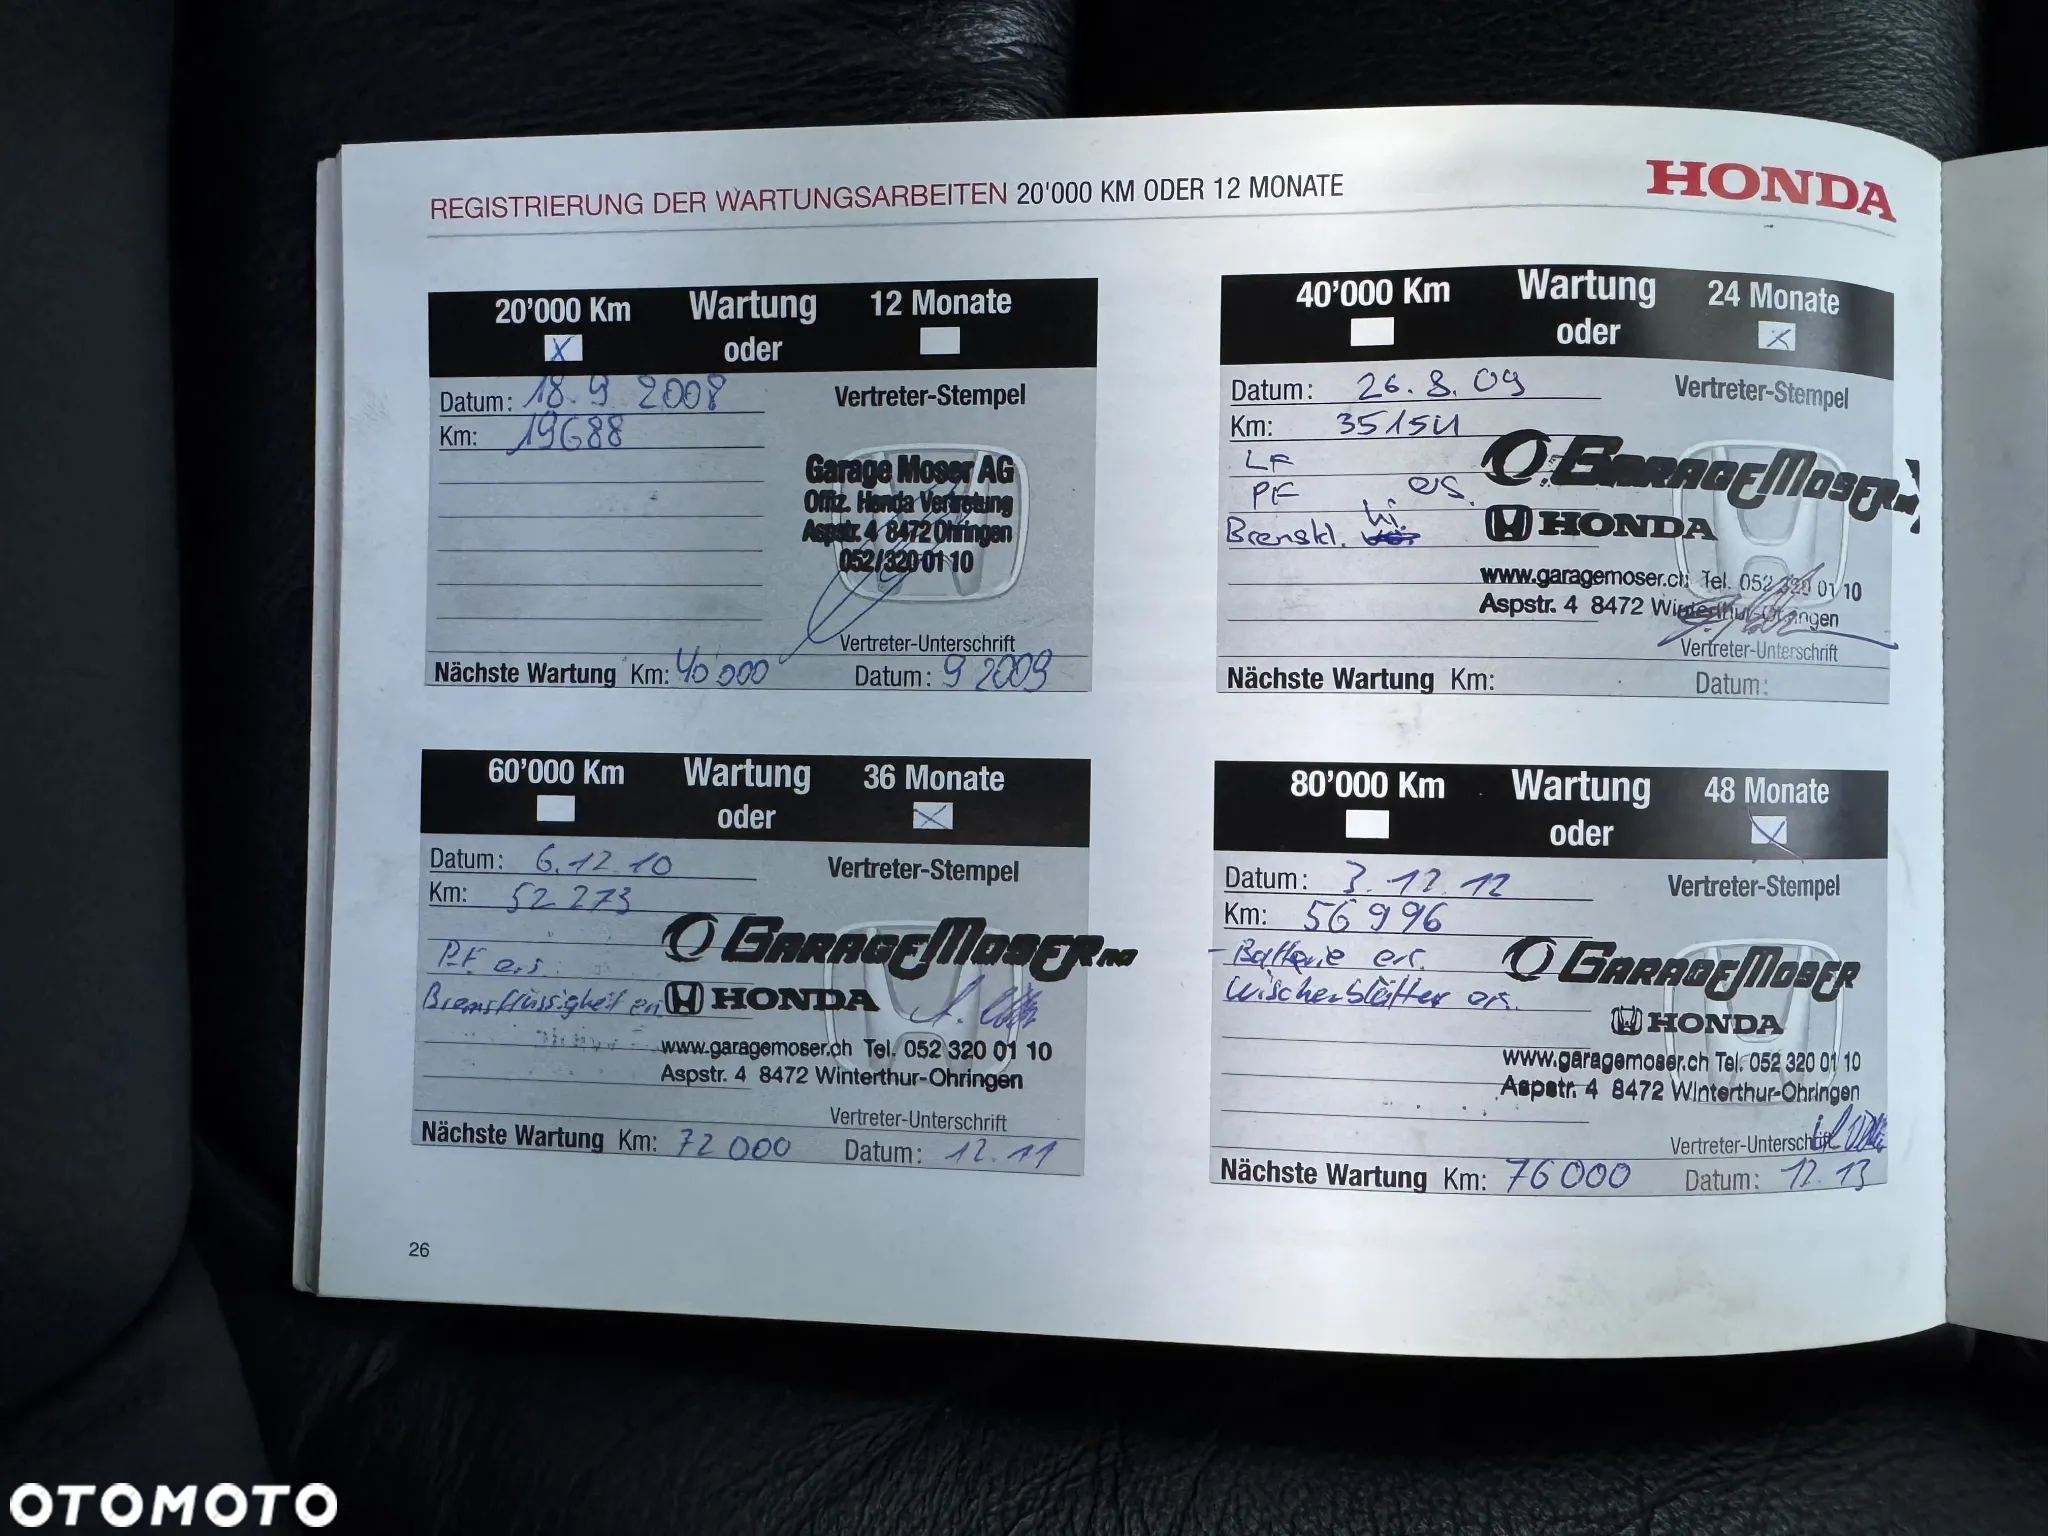 REGISTRIERUNG DER WARTUNGSARBEITEN 20'000 KM ODER 12 MONATE
HONDA
20'000 Km Wartung 12 Monate
X oder
Datum: 18.9 2008 Vertreter-Stempel
Km: 19688
Garage Moser AG
Offiz. Honda Vertretung
Aspstr. 4 8472 Ohringen
052/320 01 10
Vertreter-Unterschrift
Nächste Wartung Km: 40'000 Datum: 9 2009
40'000 Km Wartung 24 Monate
oder X
Datum: 26.8.09 Vertreter-Stempel
Km: 35154
LF
PF ers.
Bremskl. hi.
GARAGE MOSER
HONDA
www.garagemoser.ch Tel. 052 320 01 10
Aspstr. 4 8472 Winterthur-Ohringen
Vertreter-Unterschrift
Nächste Wartung Km: Datum:
60'000 Km Wartung 36 Monate
oder X
Datum: 6.12.10 Vertreter-Stempel
Km: 52 273
P.F. ers.
Bremsflüssigkeit
GARAGE MOSER AG
HONDA
www.garagemoser.ch Tel. 052 320 01 10
Aspstr. 4 8472 Winterthur-Ohringen
Vertreter-Unterschrift
Nächste Wartung Km: 72 000 Datum: 12.11
80'000 Km Wartung 48 Monate
oder X
Datum: 3.12.12 Vertreter-Stempel
Km: 56 996
- Batterie ers.
Wischerblätter ers.
GARAGE MOSER
HONDA
www.garagemoser.ch Tel. 052 320 01 10
Aspstr. 4 8472 Winterthur-Ohringen
Vertreter-Unterschrift
Nächste Wartung Km: 76 000 Datum: 12.13
26
OTOMOTO